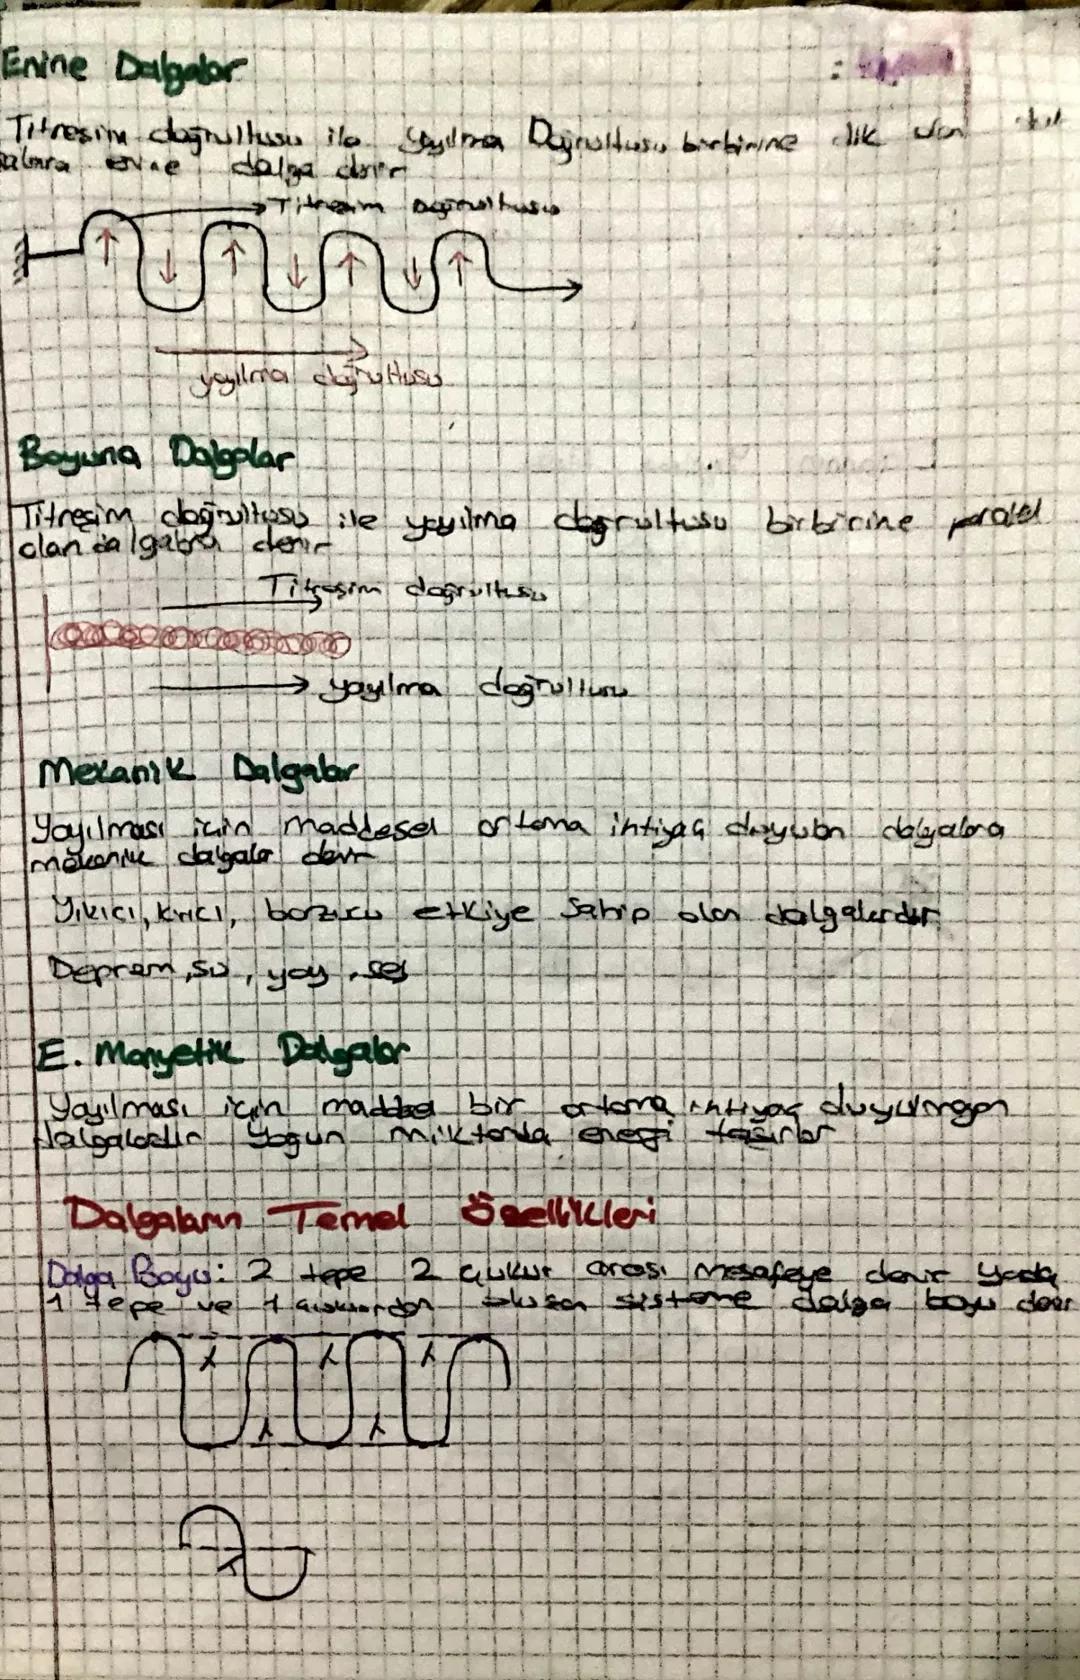 Enine Dalgalar
Titreşim doğrultusu ile yayılma Doğrultusu birbirine dik olan
enine dalga denir
Titreşim Doğrultusu
yayılma doğrultusu
Boyuna Dalgalar
Titreşim doğrultusu ile yayılma doğrultusu birbirine paralel
olan dalgalara denir
Titreşim doğrultusu
yayılma doğrultusu
Mekanik Dalgalar
Yayılması için maddesel ortama ihtiyaç duyulan dalgalara
mekanik dalgalar denir
Yıkıcı, kırıcı, bozucu etkiye sahip olan dalgalardır
Deprem, su, yay, ses
E. Manyetik Dalgalar
Yayılması için maddesel bir ortama ihtiyaç duyulmayan
dalgalardır Yogun miktarda enerji taşırlar
Dalgaların Temel Özellikleri
Dalga Boyu: 2 tepe 2 çukur arası mesafeye denir yada
1 tepe ve 1 çukurdan oluşan sisteme dalga boyu denir
λ λ λ
λ λ
λ